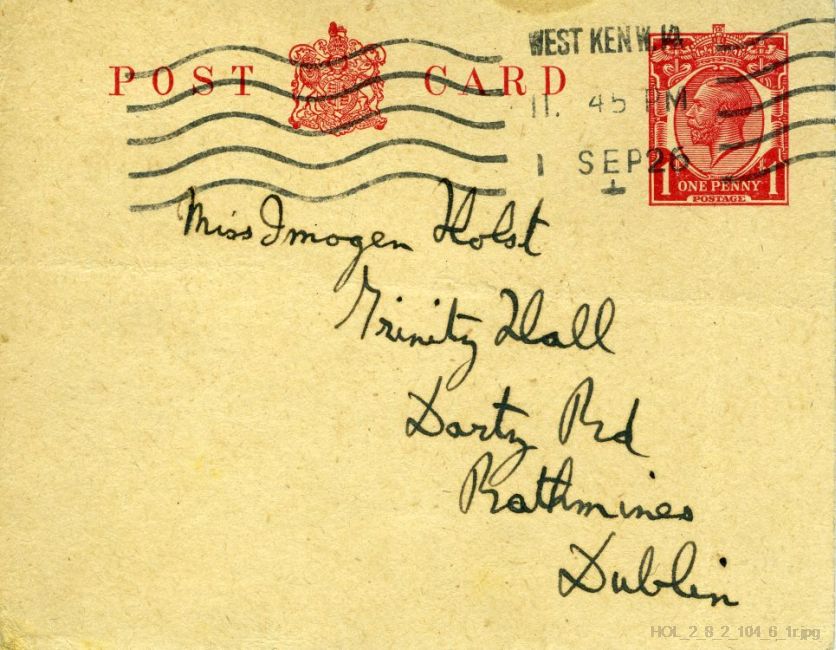 WEST KEN W.14.
POST CARD
11. 45 PM
1 SEP 26
1 ONE PENNY 1
POSTAGE
Miss Imogen Holst
Trinity Hall
Darty Rd
Rathmines
Dublin
HOL_2_8_2_104_6_1r.jpg